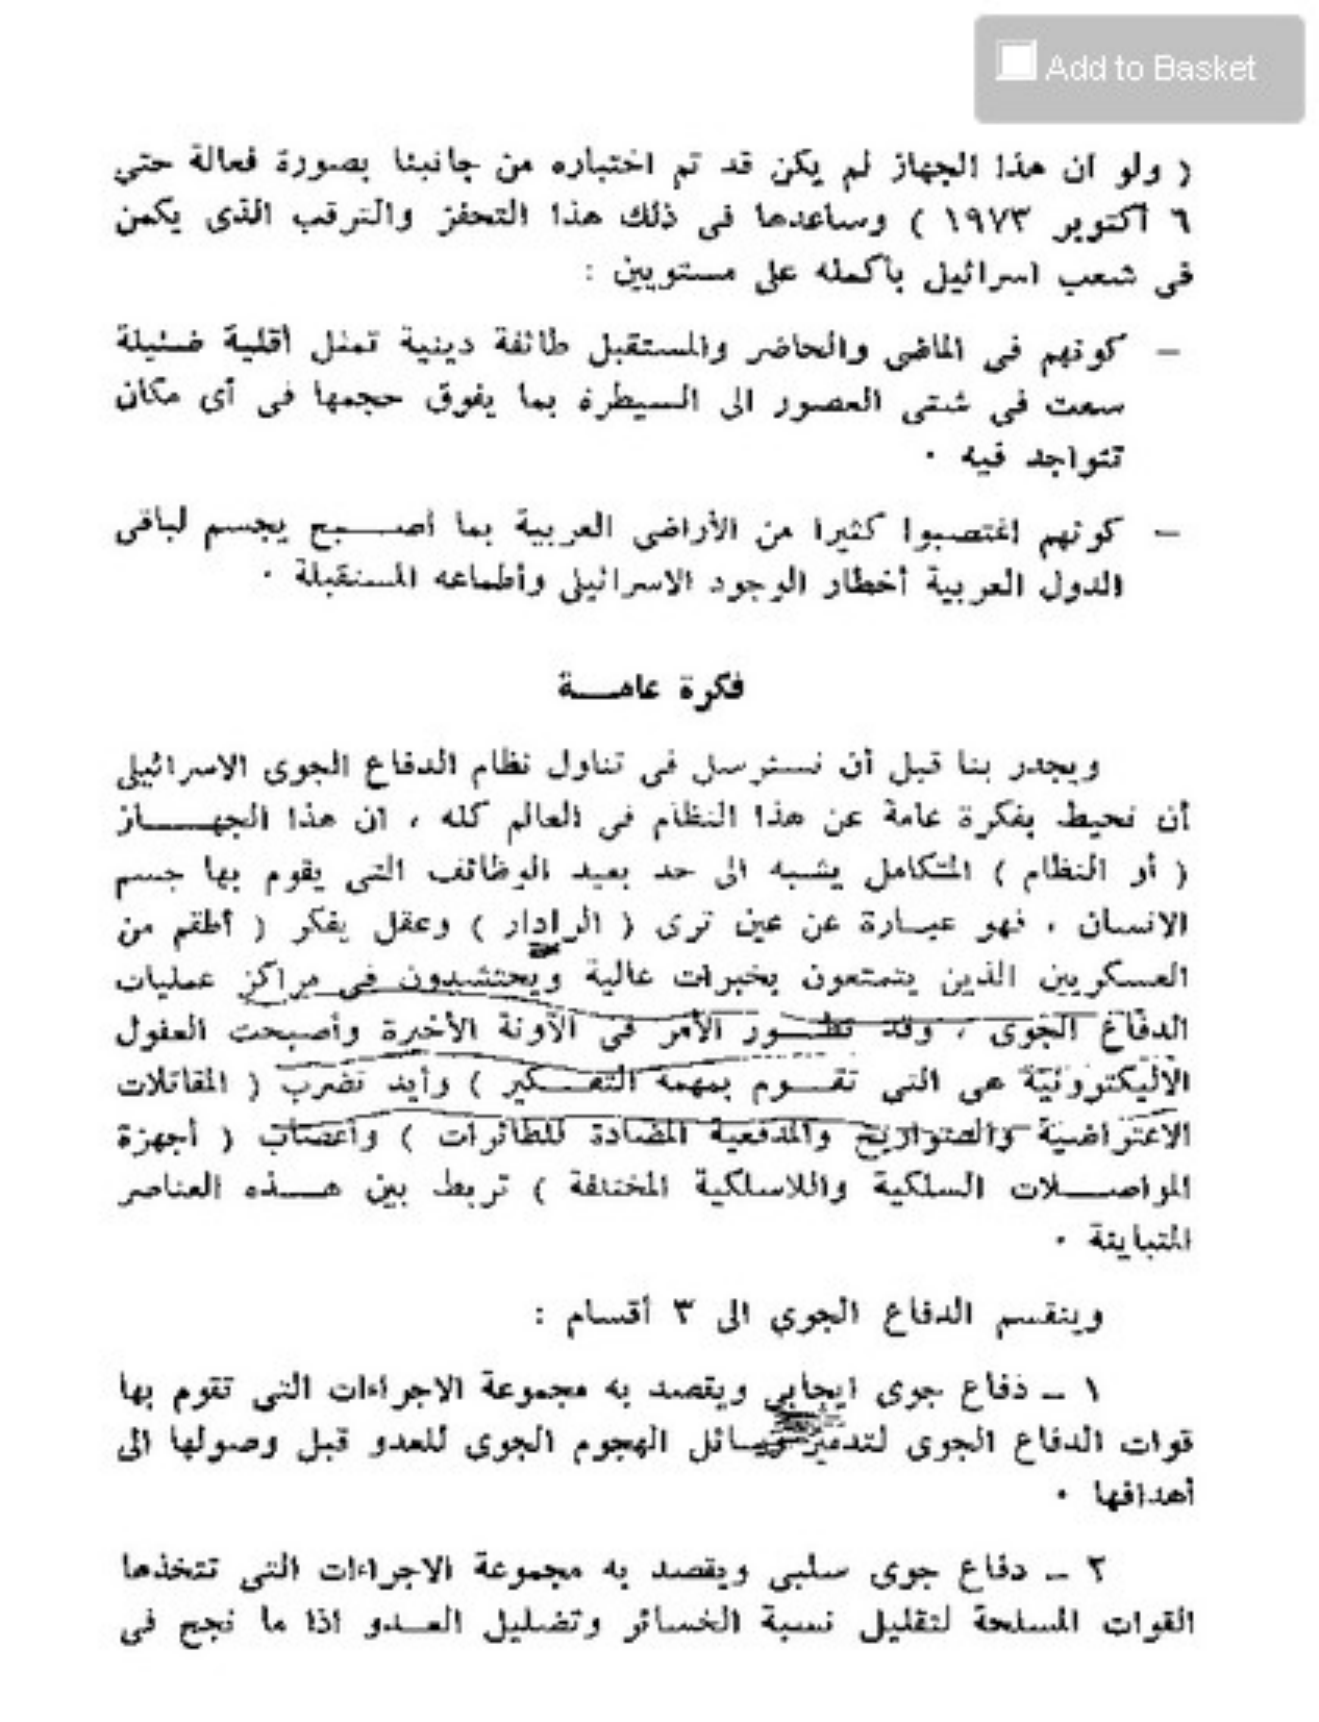 Add to Basket
( ولو ان هذا الجهاز لم يكن قد تم اختباره من جانبنا بصورة فعالة حتى
٦ أكتوبر ١٩٧٣ ) وساعدها فى ذلك هذا التحفز والترقب الذى يكمن
فى شعب اسرائيل بأكمله على مستويين :
– كونهم فى الماضى والحاضر والمستقبل طائفة دينية تمثل أقلية ضئيلة
سعت فى شتى العصور الى السيطرة بما يفوق حجمها فى أى مكان
تتواجد فيه ٠
– كونهم اغتصبوا كثيرا من الأراضى العربية بما أصـــبح يجسم لباقى
الدول العربية أخطار الوجود الاسرائيلى وأطماعه المستقبلة ٠
فكرة عامـــة
ويجدر بنا قبل أن نسترسل فى تناول نظام الدفاع الجوى الاسرائيلى
أن نحيط بفكرة عامة عن هذا النظام فى العالم كله ، ان هذا الجهـــاز
( أو النظام ) المتكامل يشبه الى حد بعيد الوظائف التى يقوم بها جسم
الانسان ، فهو عبـارة عن عين ترى ( الرادار ) وعقل يفكر ( أطقم من
العسكريين الذين يتمتعون بخبرات عالية ويحتشدون فى مراكز عمليات
الدفاع الجوى ، وقد تطـــور الأمر فى الآونة الأخيرة وأصبحت العقول
الأليكترونية هى التى تقـــوم بمهمة التفــكير ) وأيد تضرب ( المقاتلات
الاعتراضية والصواريخ والمدفعية المضادة للطائرات ) وأعصاب ( أجهزة
المواصـــلات السلكية واللاسلكية المختلفة ) تربط بين هـــذه العناصر
المتباينة ٠
وينقسم الدفاع الجوى الى ٣ أقسام :
١ – دفاع جوى ايجابى ويقصد به مجموعة الاجراءات التى تقوم بها
قوات الدفاع الجوى لتدمير وسائل الهجوم الجوى للعدو قبل وصولها الى
أهدافها ٠
٢ – دفاع جوى سلبى ويقصد به مجموعة الاجراءات التى تتخذها
القوات المسلحة لتقليل نسبة الخسائر وتضليل العــدو اذا ما نجح فى